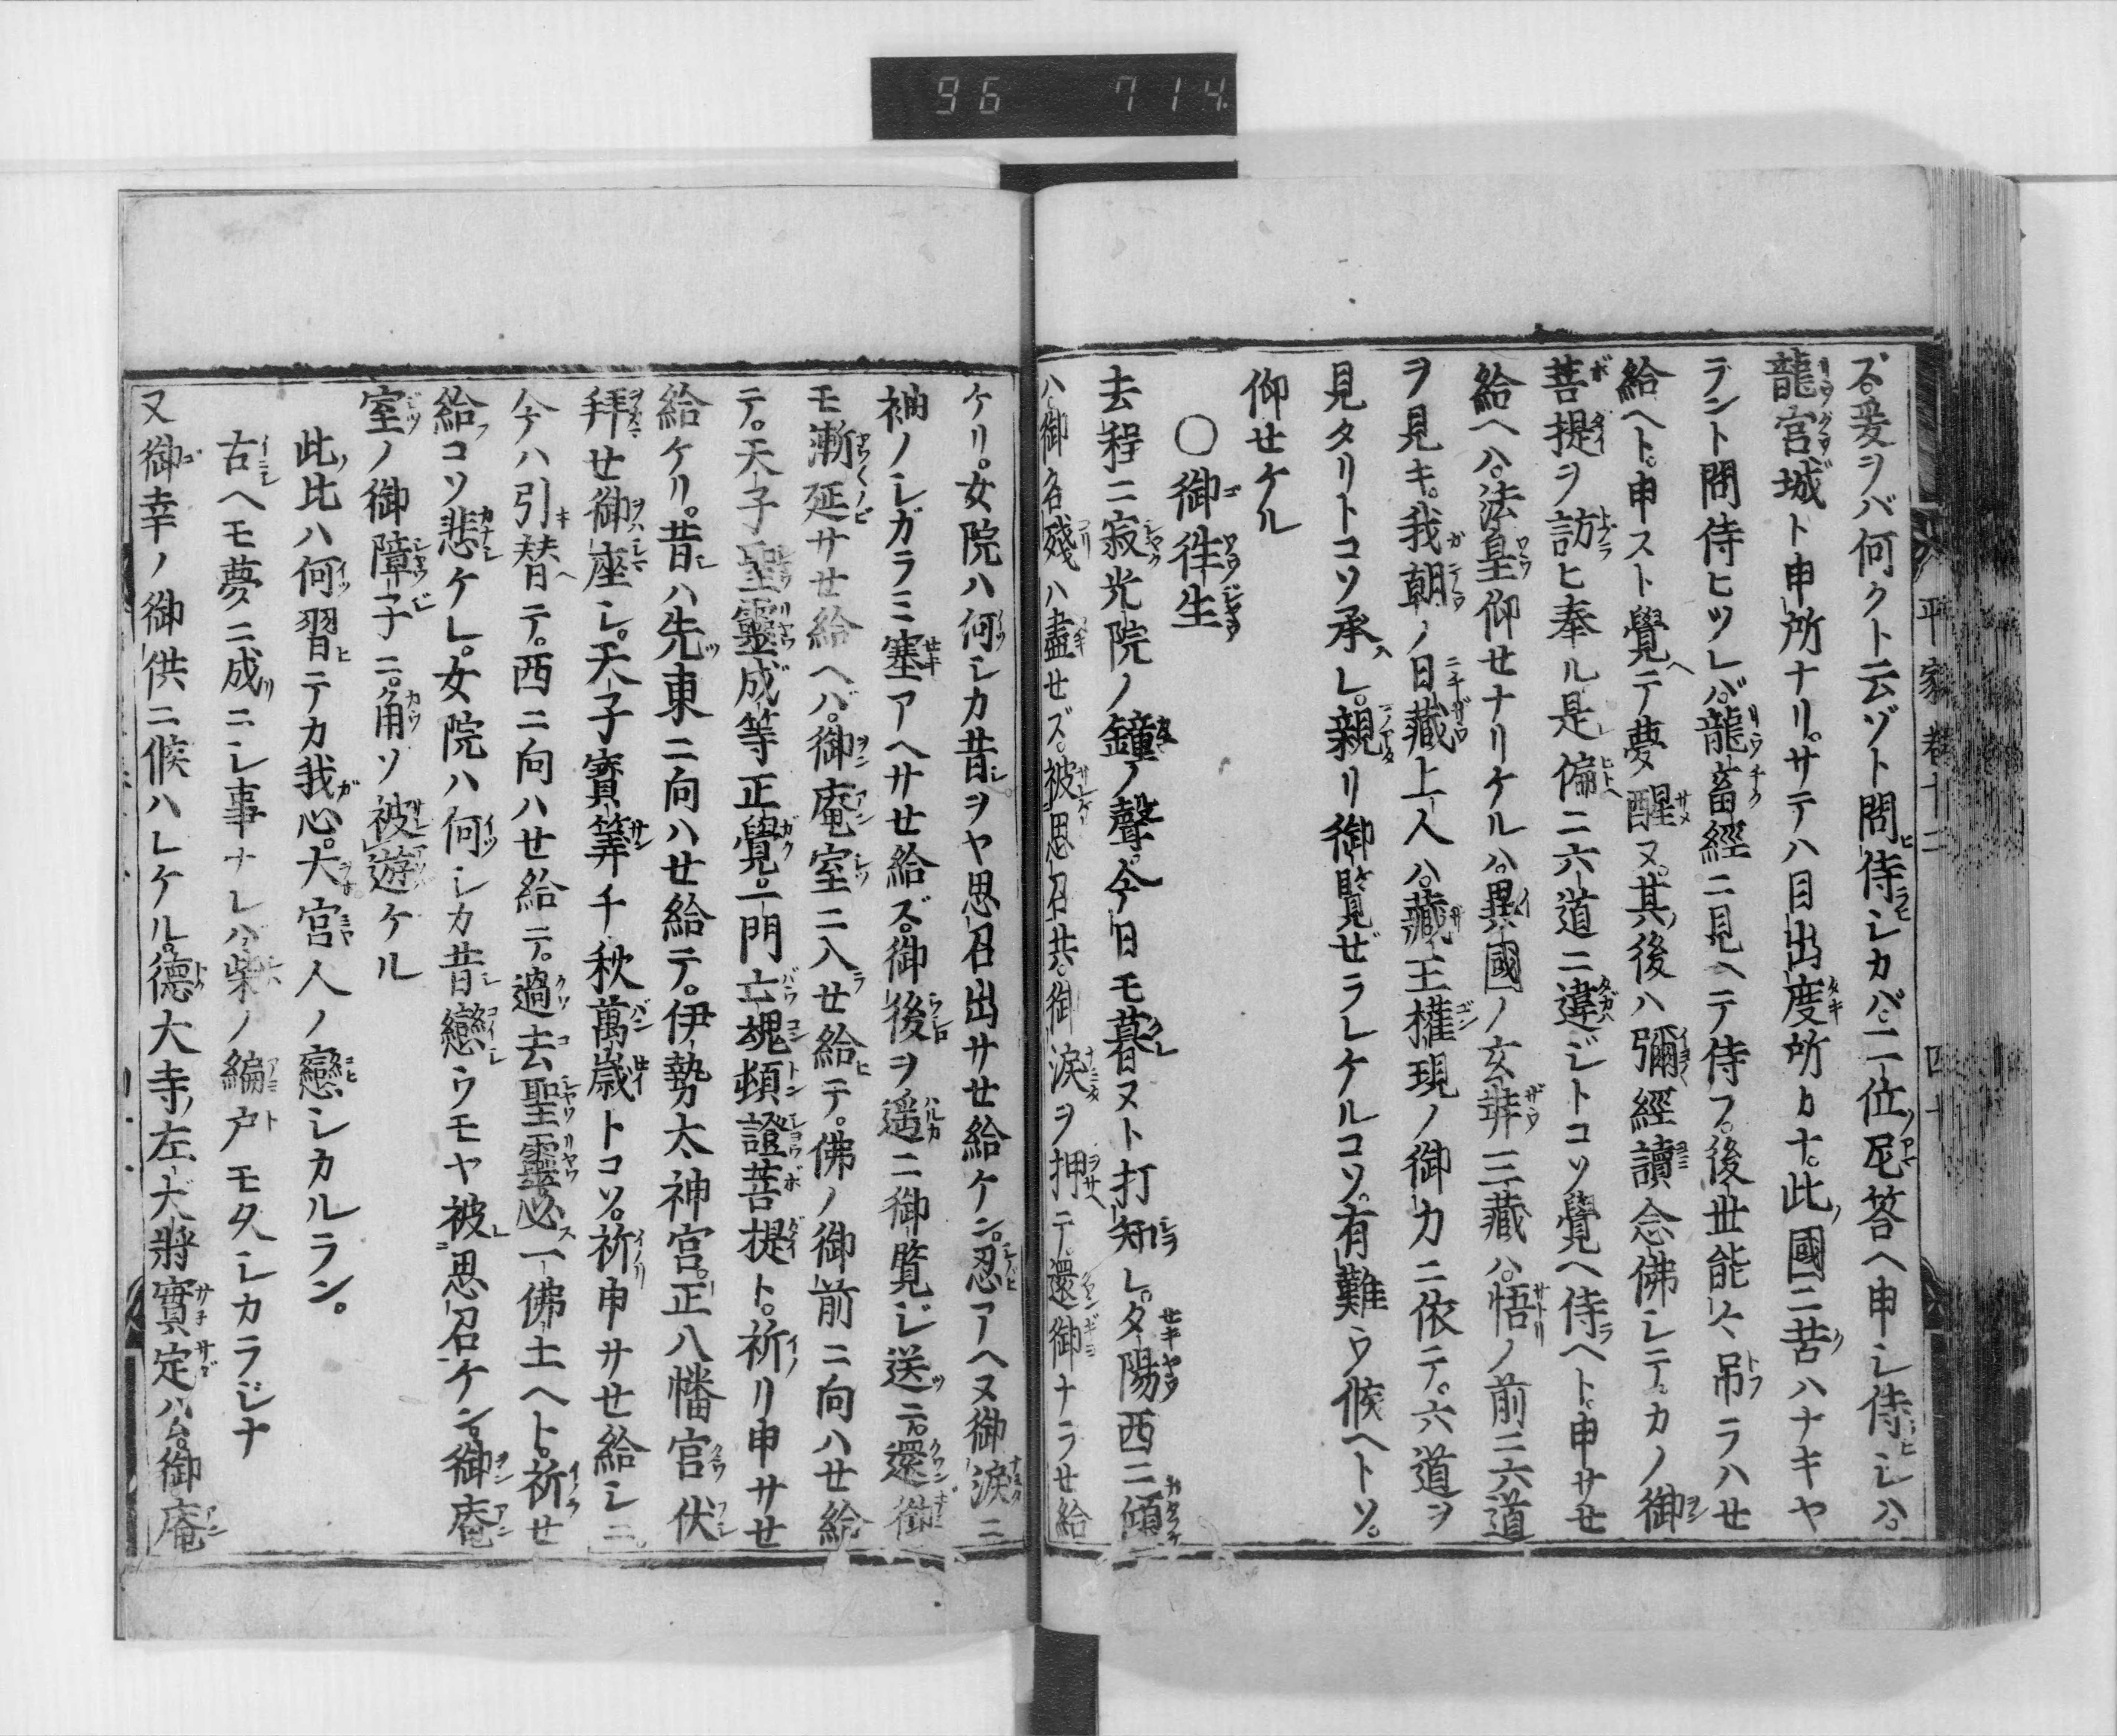 96 714
平家巻十二 四十
ズ。爰ヲバ何クト云ゾト問侍シカバ。二位尼答ヘ申シ侍シハ。
龍宮城ト申所ナリ。サテハ目出度所カナ。此國ニ苦ハナキヤ
ラント問侍ヒツレバ。龍畜經ニ見ヘテ侍フ。後世能々吊ラハせ
給ヘト。申スト覺ヘテ夢醒ヌ。其後ハ彌經讀念佛シテ。カノ御
菩提ヲ訪ヒ奉ル是偏ニ六道ニ違ジトコソ覺ヘ侍ヘト。申サせ
給ヘハ。法皇仰せナリケルハ。異國ノ玄弉三藏ハ。悟ノ前ニ六道
ヲ見キ。我朝ノ日藏上人ハ。藏王權現ノ御力ニ依テ。六道ヲ
見タリトコソ承ハレ。親リ御覽ぜラレケルコソ。有難ウ候ヘトソ。
仰せケル
〇御徃生
去程ニ寂光院ノ鐘ノ聲。今日モ暮ヌト打知シ。夕陽西ニ傾
ハ御名殘ハ盡せズ。被思召共。御涙ヲ押テ。還御ナラせ給
ケリ。女院ハ何シカ昔ヲヤ思召出サせ給ケン。忍アヘヌ御涙ニ
袖ノシガラミ塞アヘサせ給ズ。御後ヲ遥ニ御覽ジ送テ。還御
モ漸延サせ給ヘバ。御庵室ニ入せ給テ。佛ノ御前ニ向ハせ給
テ。天子聖靈成等正覺。一門亡魂頓證菩提ト。祈リ申サせ
給ケリ。昔ハ先東ニ向ハせ給テ。伊勢太神宮。正八幡宮伏
拜せ御座シ。天子寳筭千秋萬歳トコソ。祈申サせ給シニ。
今ハ引替テ。西ニ向ハせ給テ。過去聖靈必一佛土ヘト。祈せ
給コソ悲ケレ。女院ハ何シカ昔戀ウモヤ被思召ケン。御庵
室ノ御障子ニ。角ソ被遊ケル
此比ハ何習テカ我心。大宮人ノ戀シカルラン。
古ヘモ夢ニ成ニシ事ナレバ。柴ノ編戸モ久シカラジナ
又御幸ノ御供ニ候ハレケル。德大寺左大將實定公。御庵